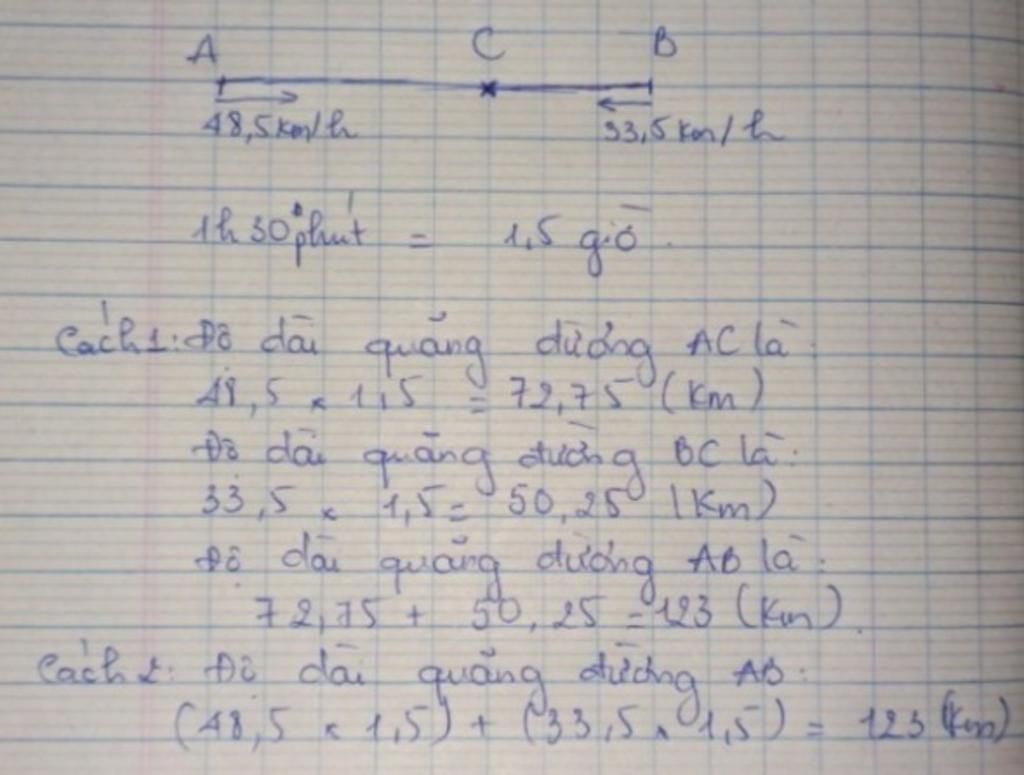 A C B
48,5 km/h 33,5 km/h
1h 30 phút = 1,5 giờ.
Cách 1: Độ dài quãng đường AC là:
48,5 × 1,5 = 72,75 (Km)
Độ dài quãng đường BC là:
33,5 × 1,5 = 50,25 (Km)
Độ dài quãng đường AB là:
72,75 + 50,25 = 123 (Km).
Cách 2: Độ dài quãng đường AB:
(48,5 × 1,5) + (33,5 × 1,5) = 123 (Km)